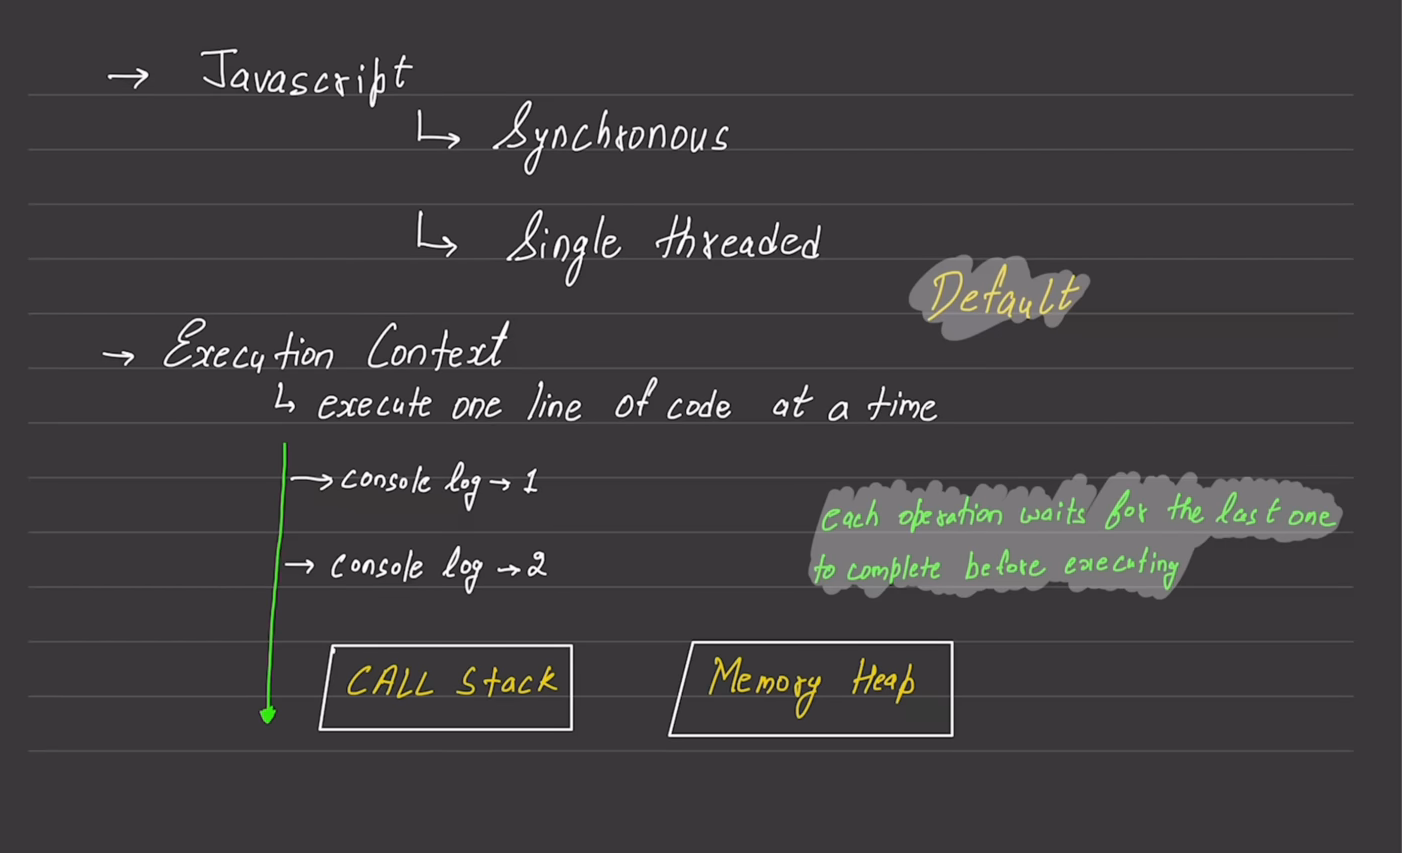 → Javascript
↳ Synchronous
↳ Single threaded
Default
→ Execution Context
↳ execute one line of code at a time
→ console log → 1
each operation waits for the last one
→ console log → 2
to complete before executing
CALL Stack
Memory Heap